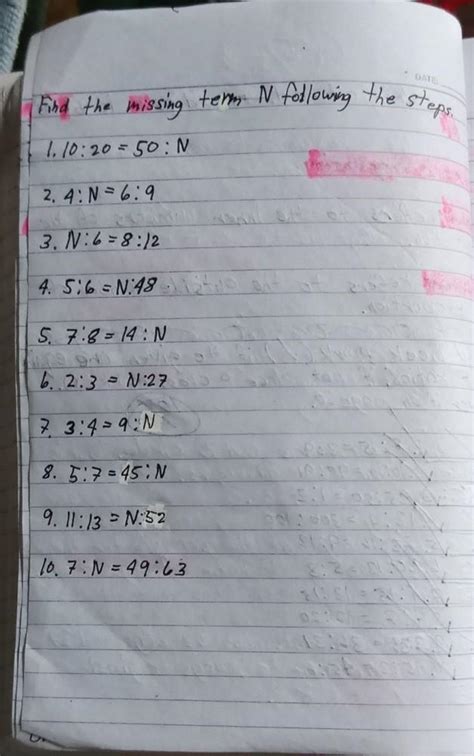 DATE
Find the missing term N following the steps.
1. 10:20 = 50:N
2. 4:N = 6:9
3. N:6 = 8:12
4. 5:6 = N:48
5. 7:8 = 14:N
6. 2:3 = N:27
7. 3:4 = 9:N
8. 5:7 = 45:N
9. 11:13 = N:52
10. 7:N = 49:63